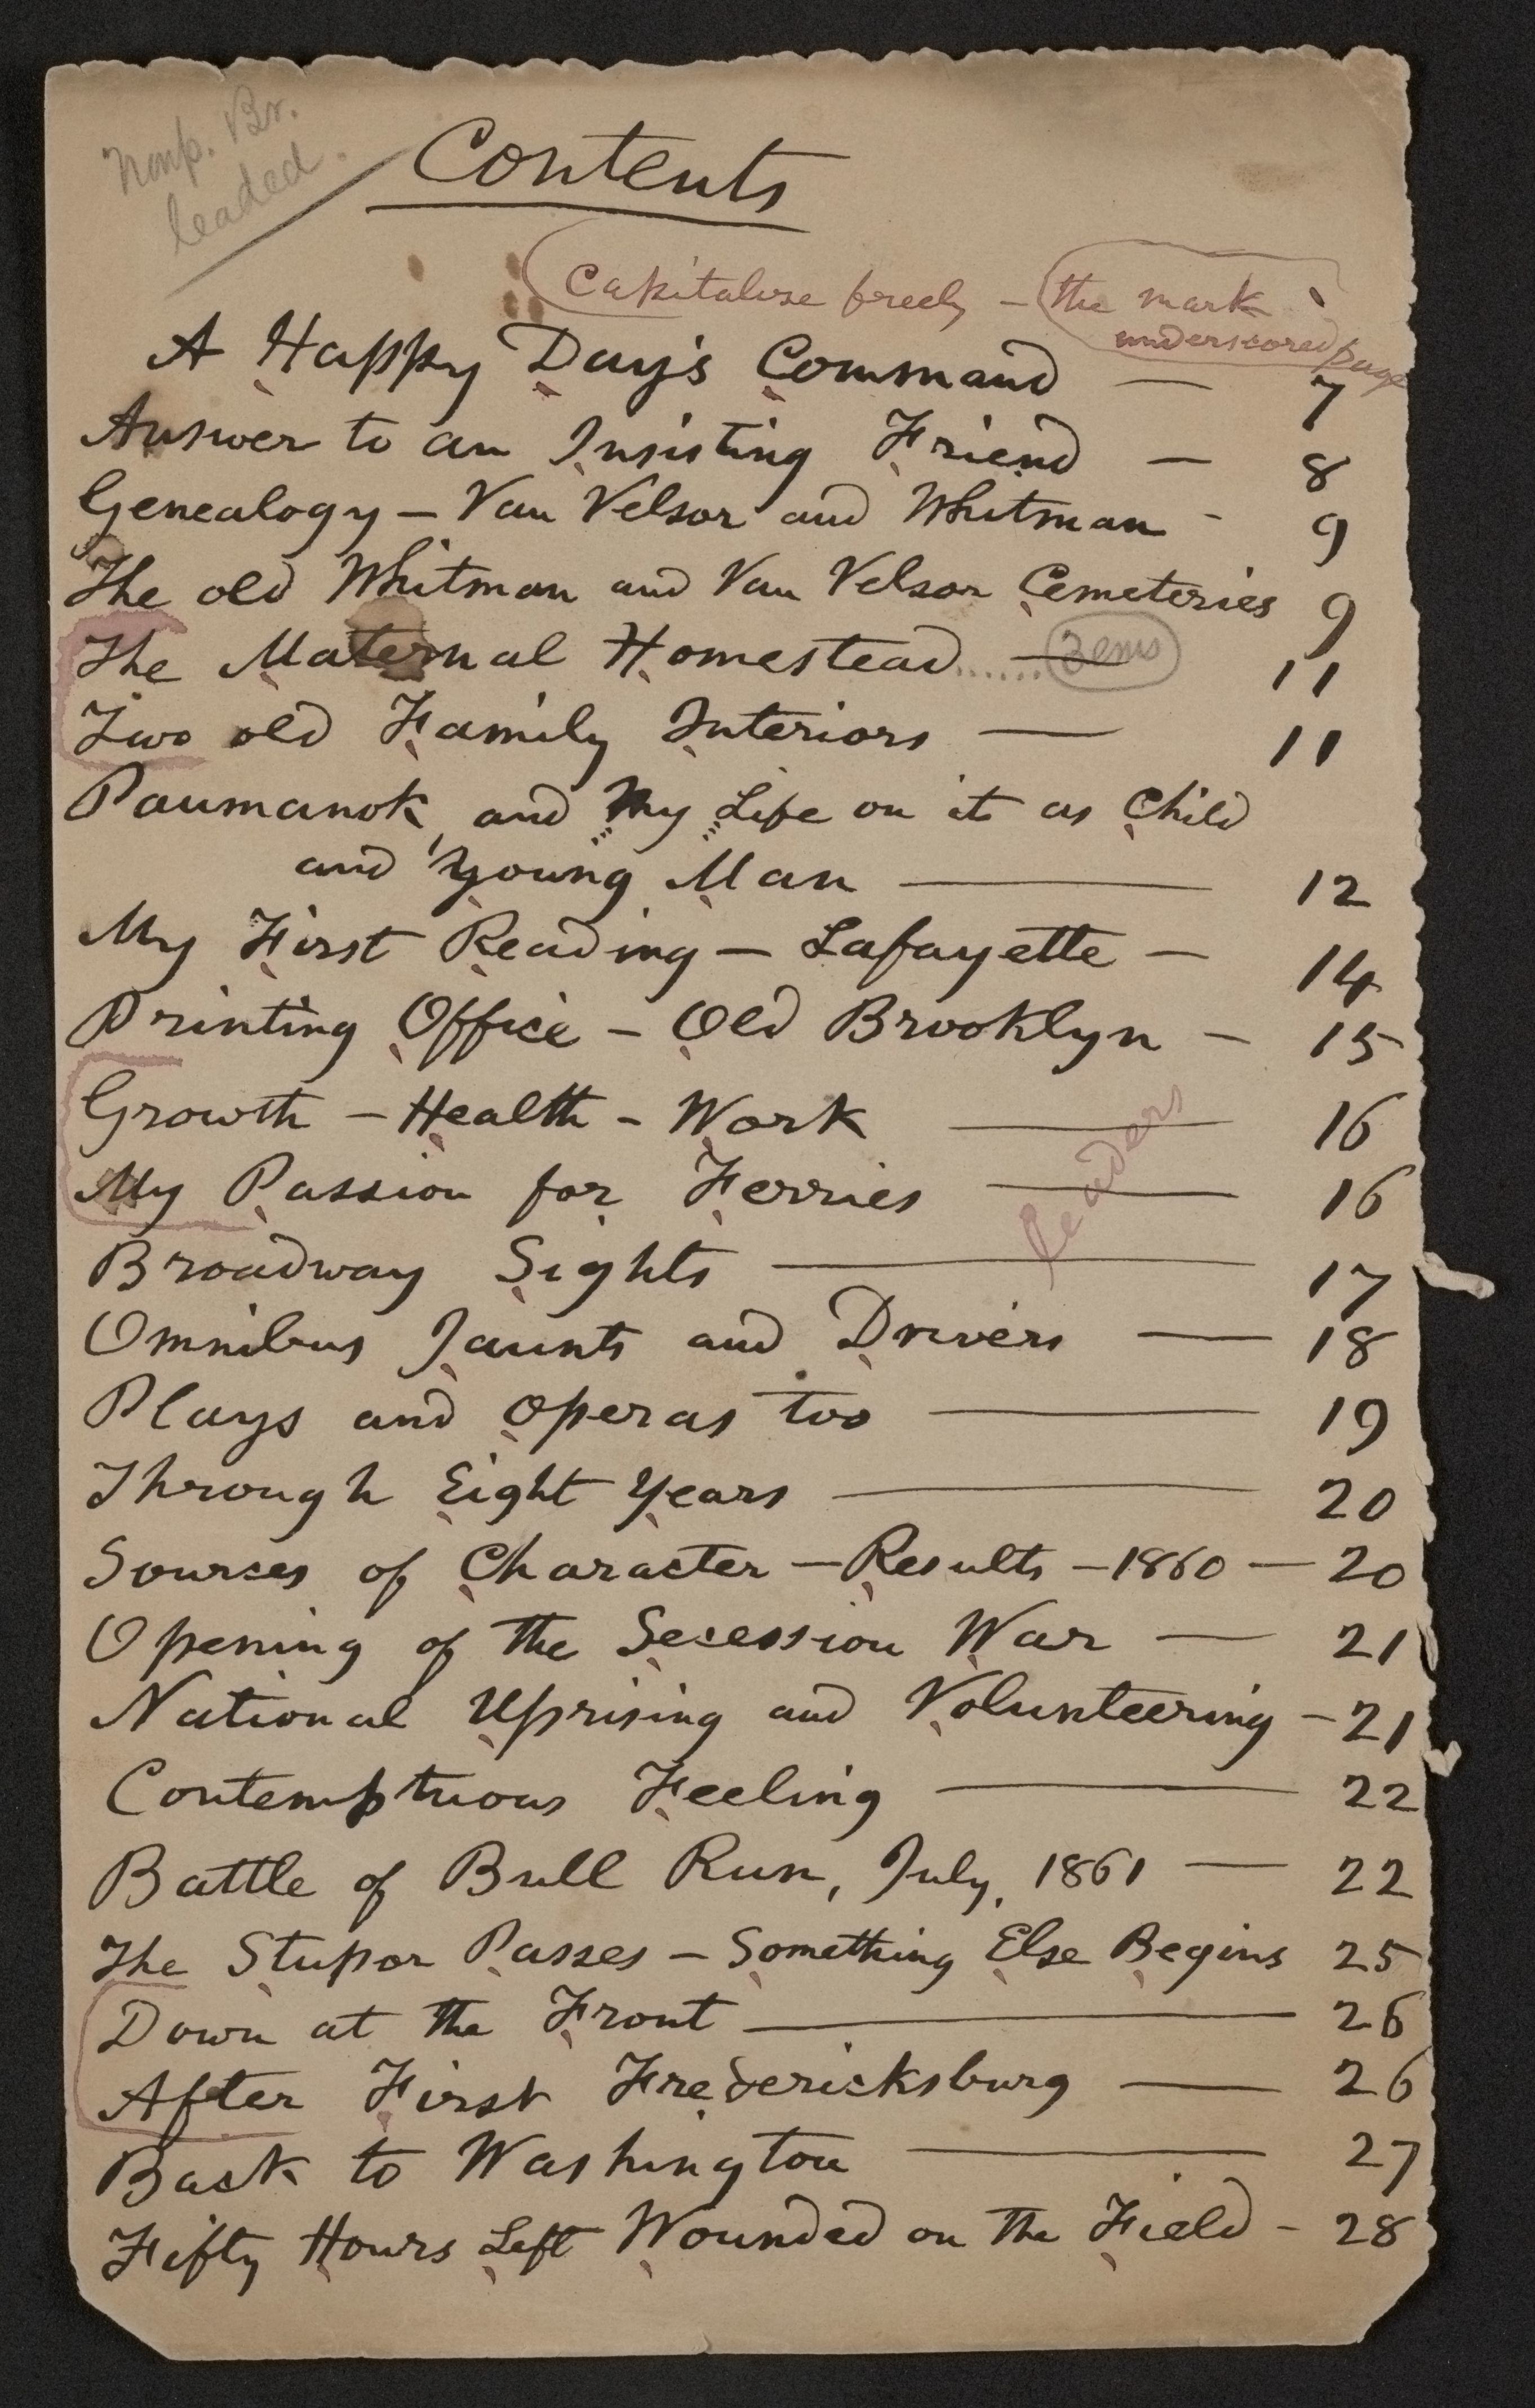 nonp. Br.
leaded.
Contents
Capitalize freely – the mark
underscored
page
A Happy Day's Command — 7
Answer to an Insisting Friend — 8
Genealogy – Van Velsor and Whitman - 9
The old Whitman and Van Velsor Cemeteries 9
The Maternal Homestead ...... — 3 ems 11
Two old Family Interiors — 11
Paumanok, and My Life on it as Child
and Young Man — 12
My First Reading – Lafayette — 14
Printing Office – Old Brooklyn – 15
Growth – Health – Work — 16
leaders
My Passion for Ferries — 16
Broadway Sights — 17
Omnibus Jaunts and Drivers — 18
Plays and Operas too — 19
Through Eight Years — 20
Sources of Character – Results – 1860 — 20
Opening of the Secession War — 21
National Uprising and Volunteering – 21
Contemptuous Feeling — 22
Battle of Bull Run, July, 1861 — 22
The Stupor Passes – Something Else Begins 25
Down at the Front — 26
After First Fredericksburg — 26
Back to Washington — 27
Fifty Hours Left Wounded on the Field – 28